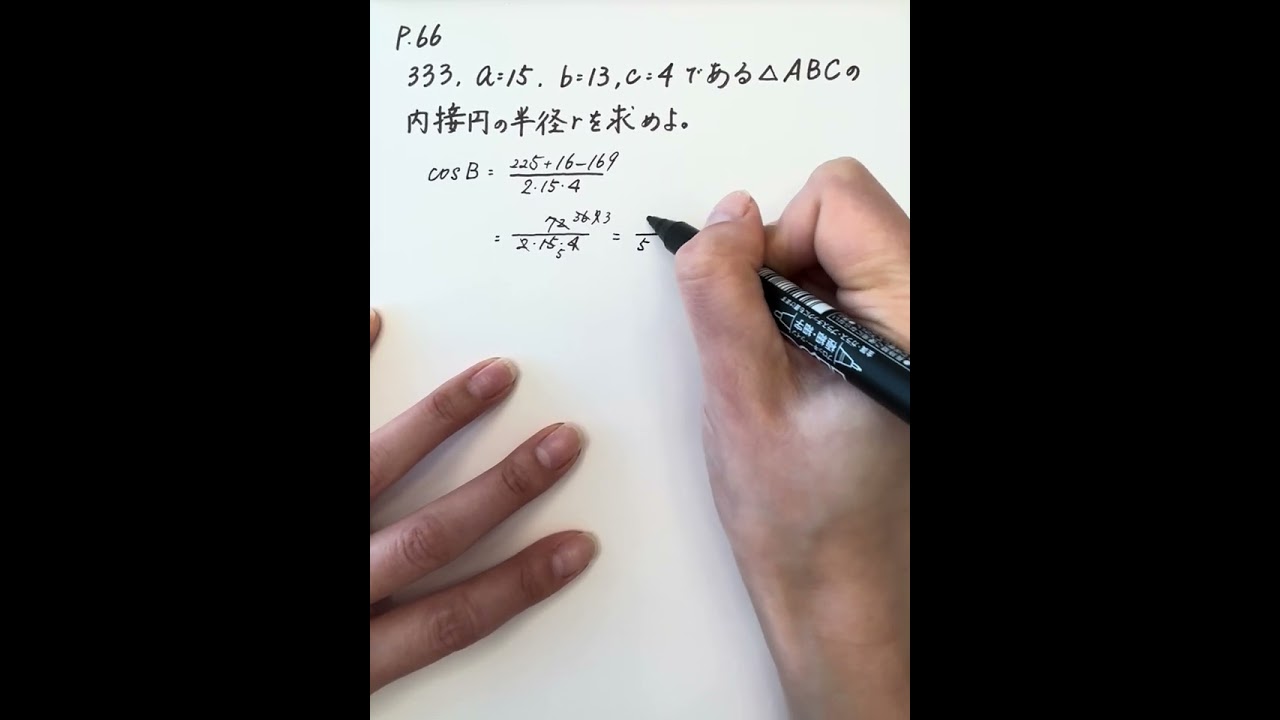 P.66
333. a=15. b=13, c=4 である△ABCの
内接円の半径rを求めよ。
cosB = 225+16-169
2・15・4
= 72 36 9 3
2・15・4 5
=
5
極細・細字